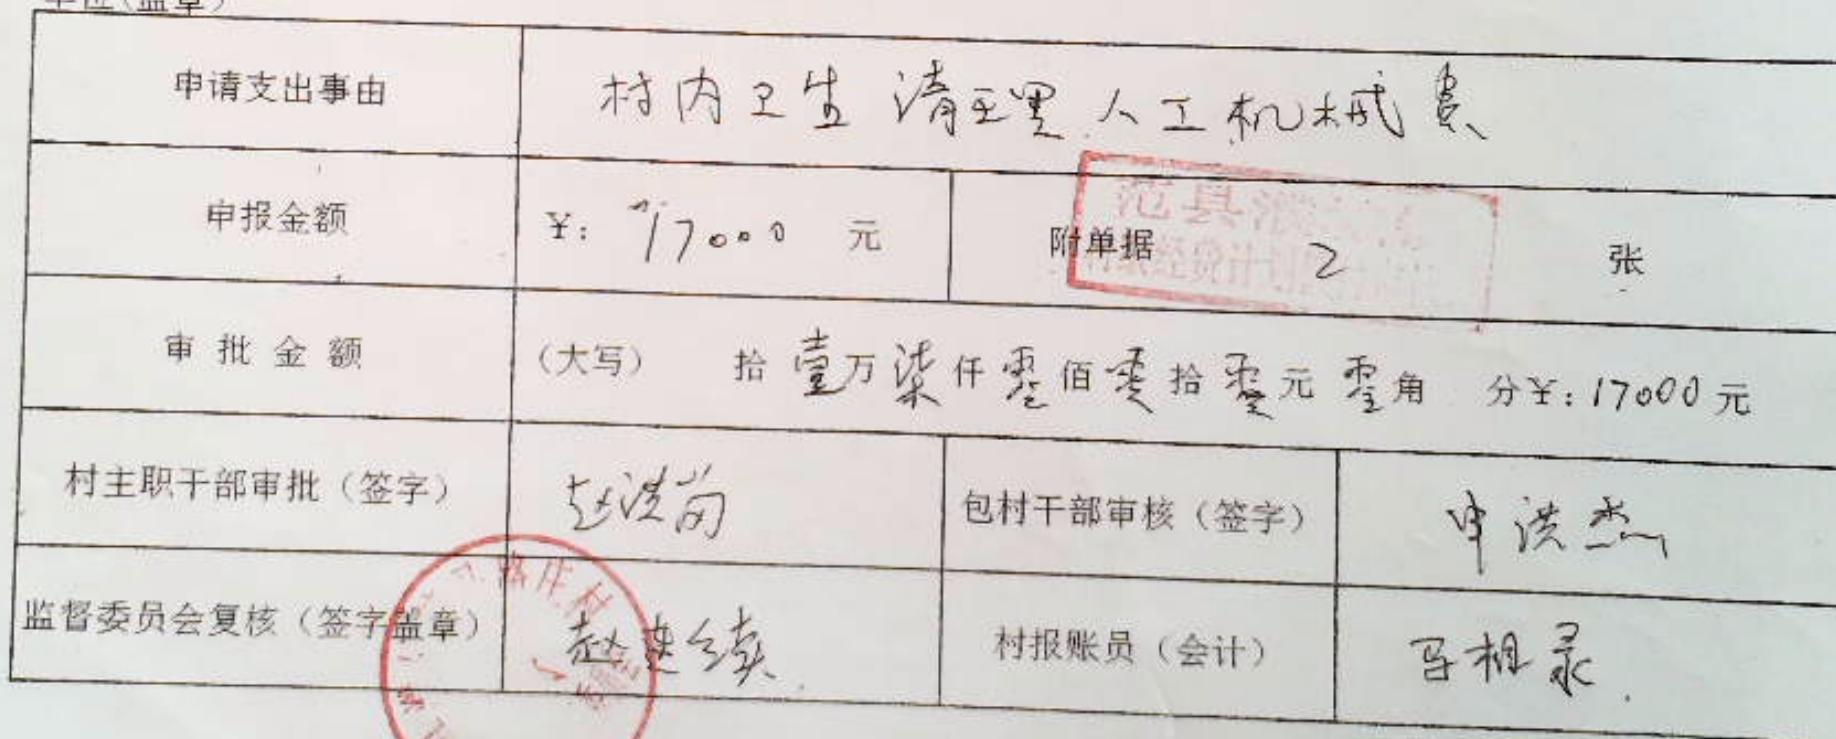 单位(盖章)
申请支出事由 村内卫生清理人工机械费
申报金额 ¥: 17000 元 附单据 2 张
范县
审批金额 (大写) 拾壹万柒仟零佰零拾零元零角 分¥:17000元
村主职干部审批(签字) 赵洪岗 包村干部审核(签字) 申洪杰
监督委员会复核(签字盖章) 赵连续 村报账员(会计) 马相录
庄村